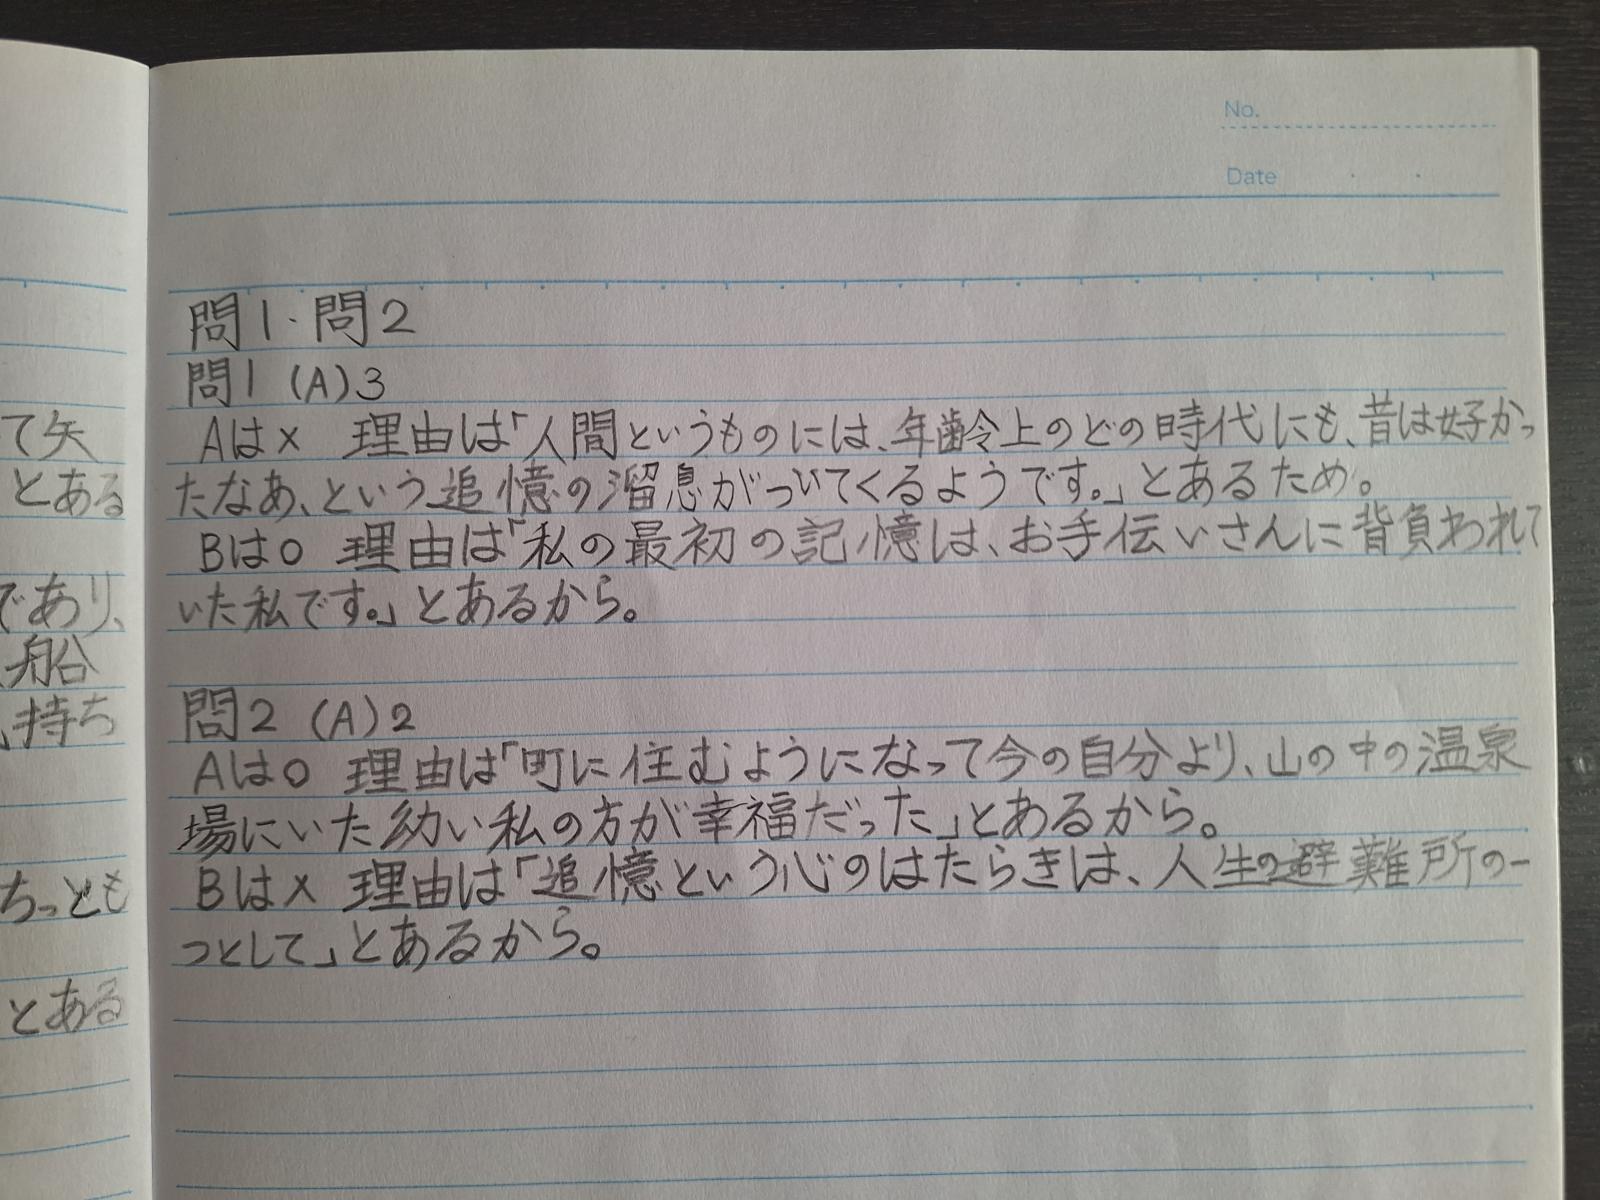 No.
Date
て矢
とある
であり、
船
持ち
ちっとも
とある
問1・問2
問1 (A)3
Aは× 理由は「人間というものには、年齢上のどの時代にも、昔は好かっ
たなあ、という追憶の溜息がついてくるようです。」とあるため。
Bは○ 理由は「私の最初の記憶は、お手伝いさんに背負われて
いた私です。」とあるから。
問2 (A)2
Aは○ 理由は「町に住むようになって今の自分より、山の中の温泉
場にいた幼い私の方が幸福だった」とあるから。
Bは× 理由は「追憶という心のはたらきは、人生の避難所の一
つとして」とあるから。